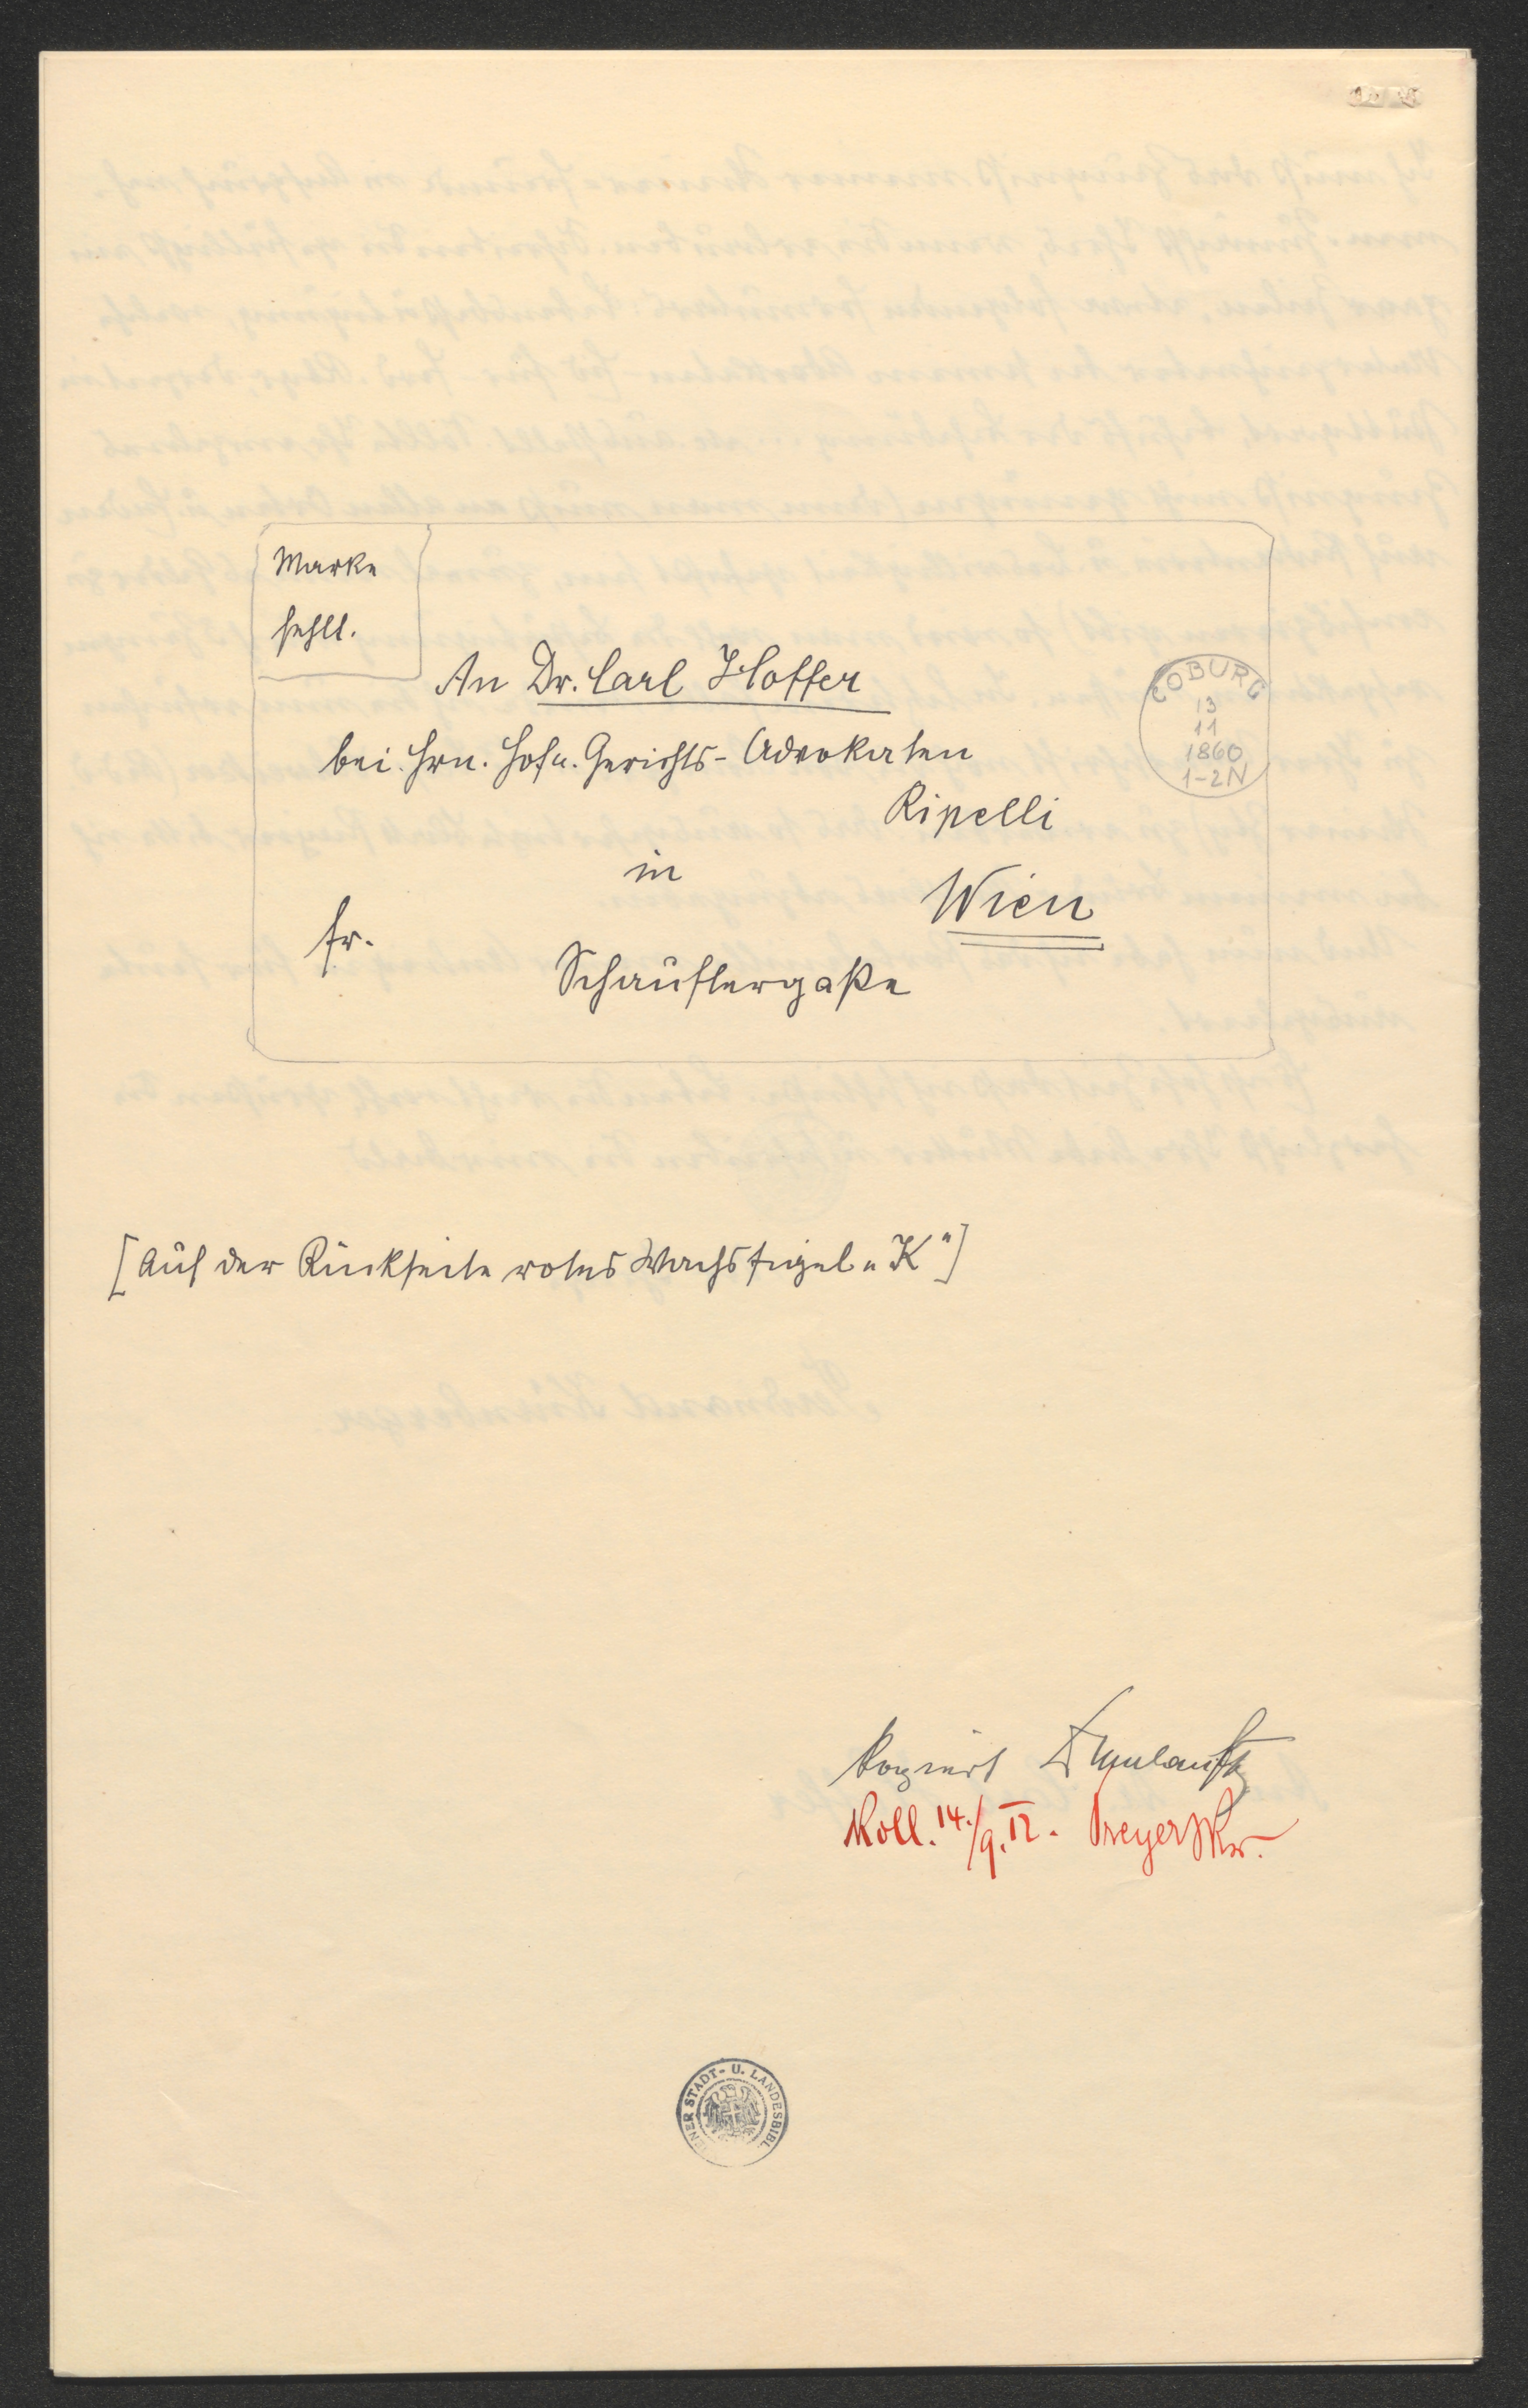 Marke
fehlt.
An Dr. Carl Hoffer
bei Hrn. Hof u. Gerichts-Advokaten
Ripelli
in
Wien
fr.
Schauflergaße
COBURG
13
11
1860
1-2N
[Auf der Rückseite rotes Wachssigel „K“]
Kopiert
Koll. 14./9.12.
WIENER STADT- U. LANDESBIBL.